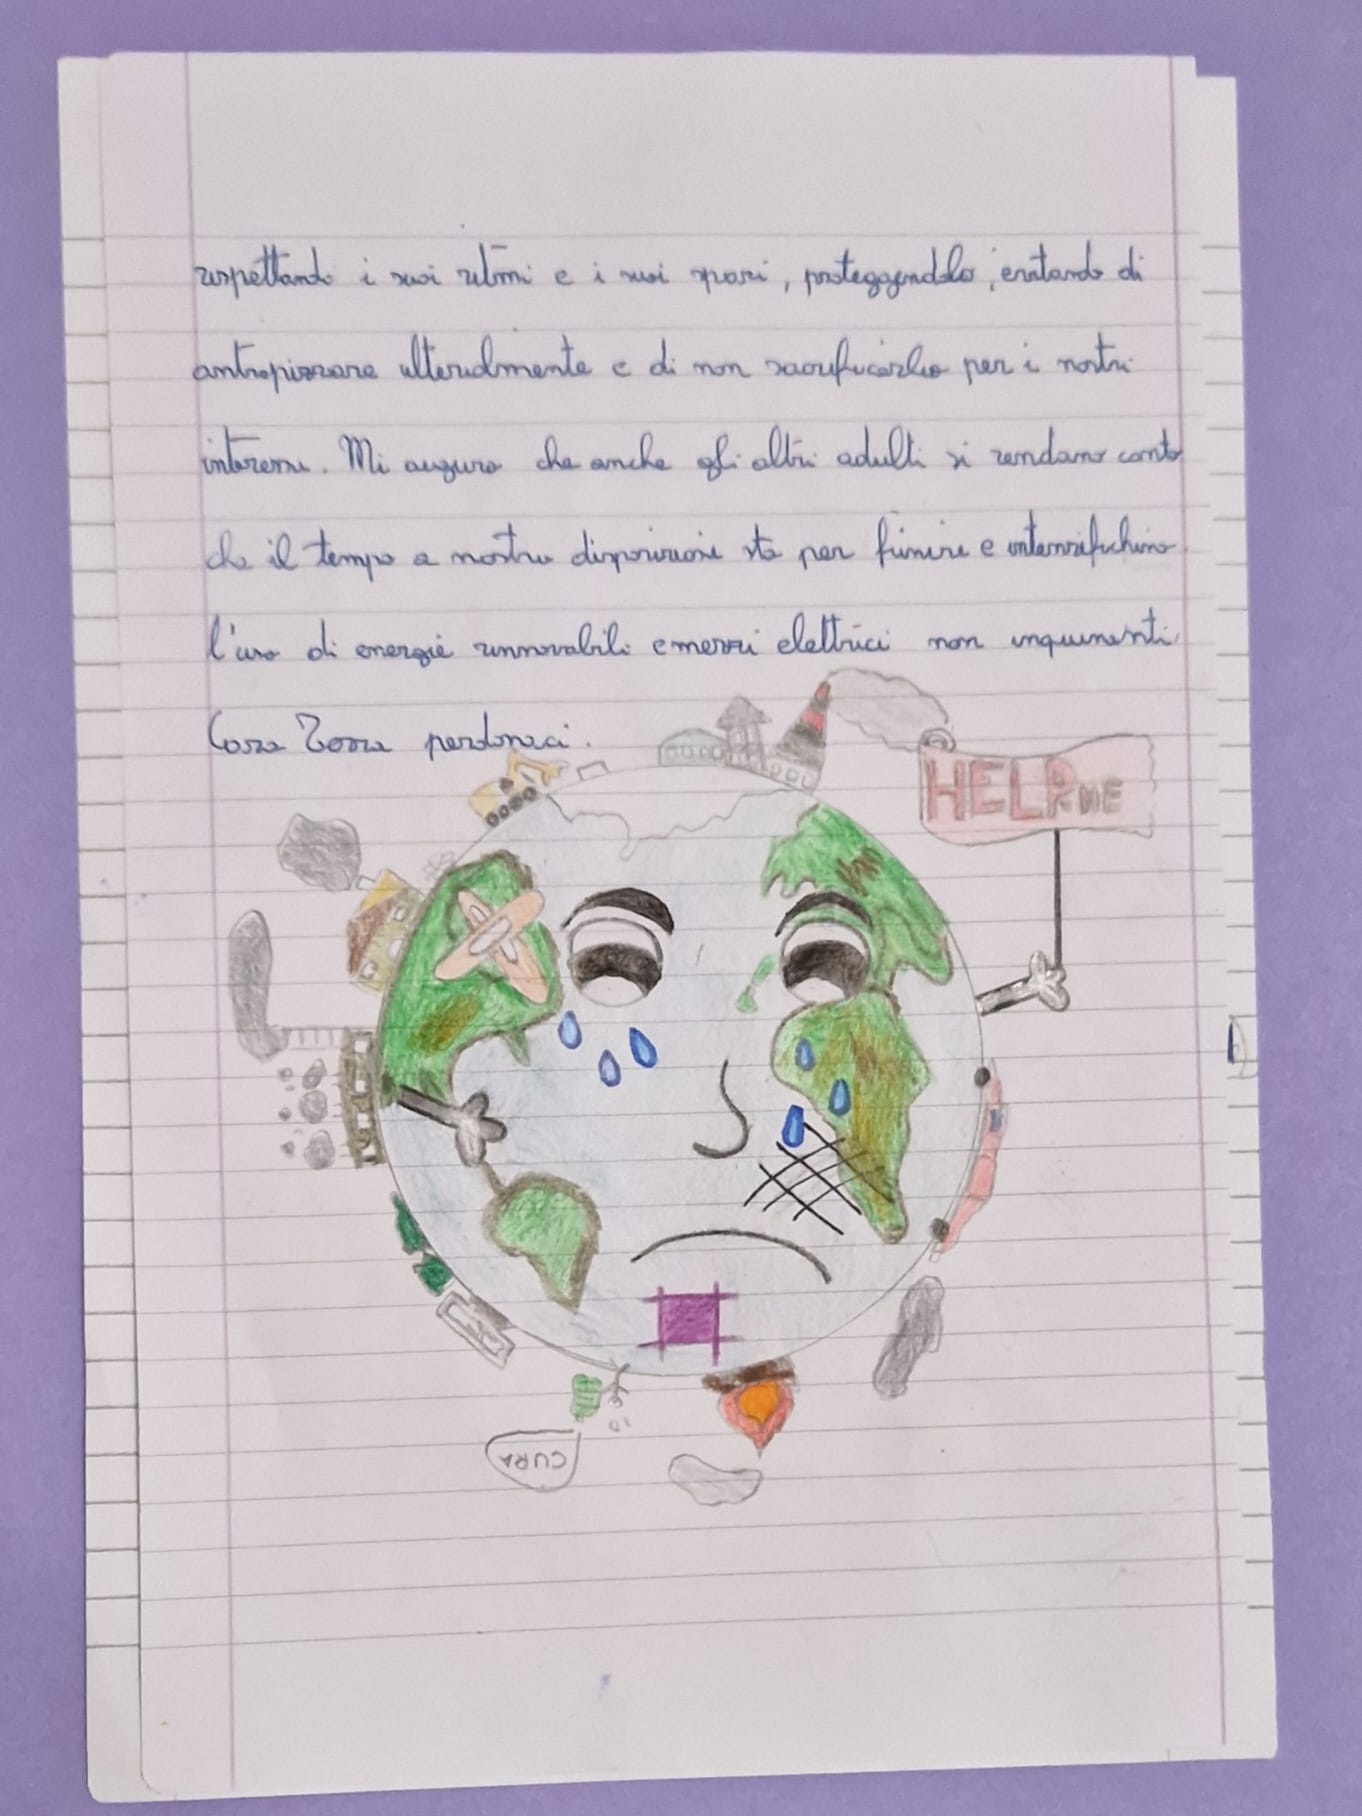 rispettando i suoi ritmi e i suoi spazi, proteggendolo, evitando di
antropizzare ulteriolmente e di non sacrificarlo per i nostri
interessi. Mi auguro che anche gli altri adulti si rendano conto
che il tempo a nostra disposizione sta per finire e intensifichino
l'uso di energie rinnovabili e mezzi elettrici non inquinanti.
Cara Terra perdonaci.
HELP ME
CURA